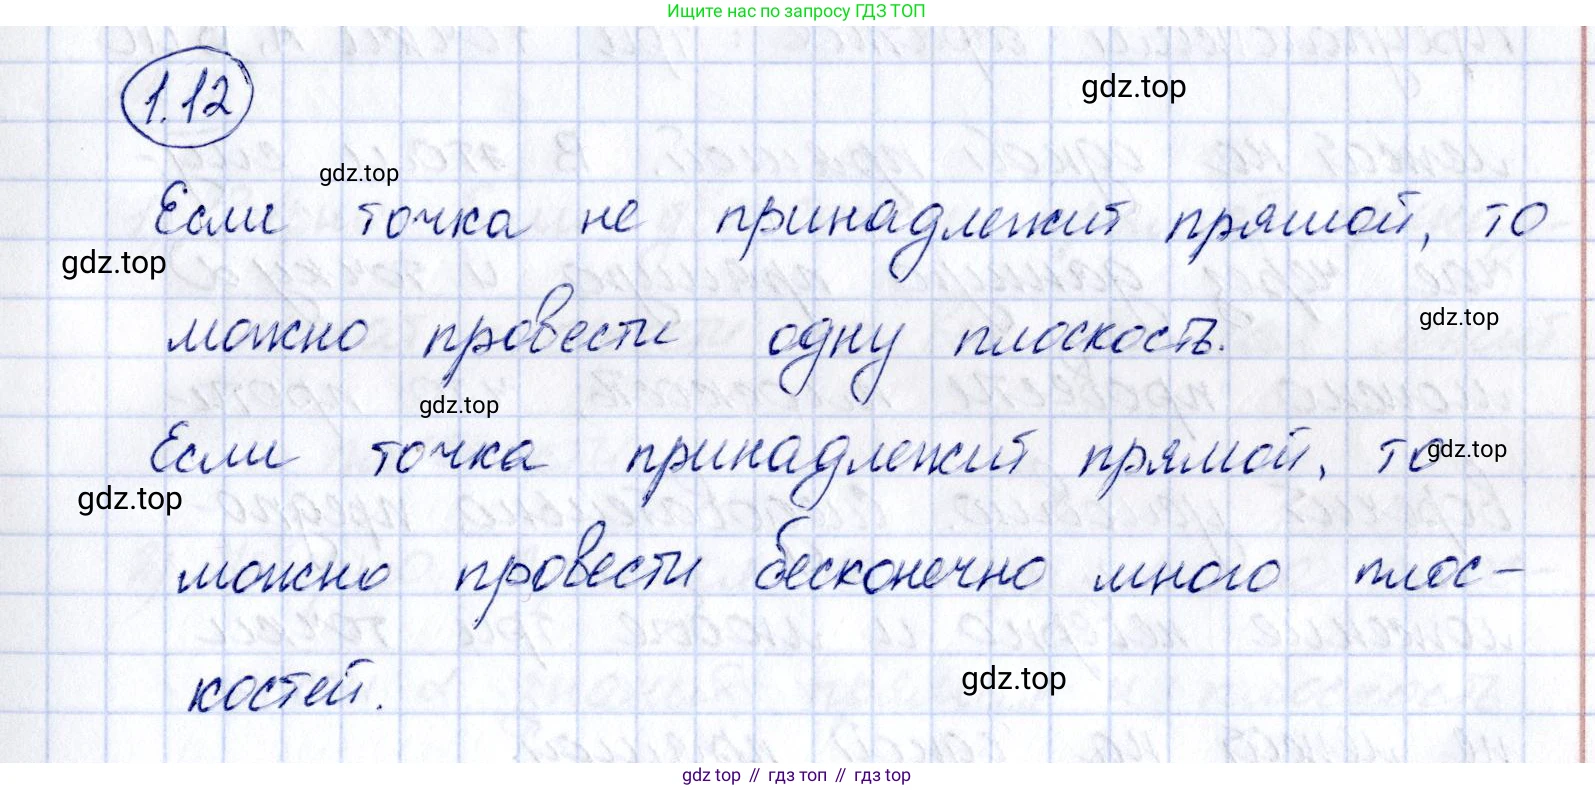 Ищите нас по запросу ГДЗ ТОП
1.12
gdz.top
gdz.top
Если точка не принадлежит прямой, то
gdz.top
можно провести одну плоскость.
gdz.top
gdz.top
Если точка принадлежит прямой, то
gdz.top
gdz.top
можно провести бесконечно много плос-
костей.
gdz.top
gdz top // гдз топ // гдз top